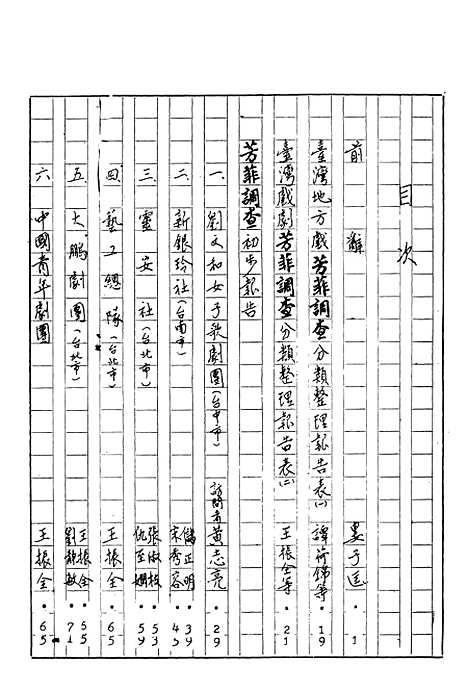 目次
前難 婁子匡・1
臺灣地方戲芳菲調查分類整理報告表(一) 譚荷錦等・19
臺灣戲劇芳菲調查分類整理報告表(二) 王振全等・21
芳菲調查初步報告
一、劉文和女子歌劇團(台中市) 訪問者黃志亮・29
二、新銀玲社(台南市) 儲正明・39 宋秀容・45
三、靈安社(台北市) 張淑枝・53 仇至嫻・59
四、藝工總隊(台北市) 王振全・65
五、大鵬劇團(台北市) 王振全・55 劉靜敏・71
六、中國青年劇團 王振全・65